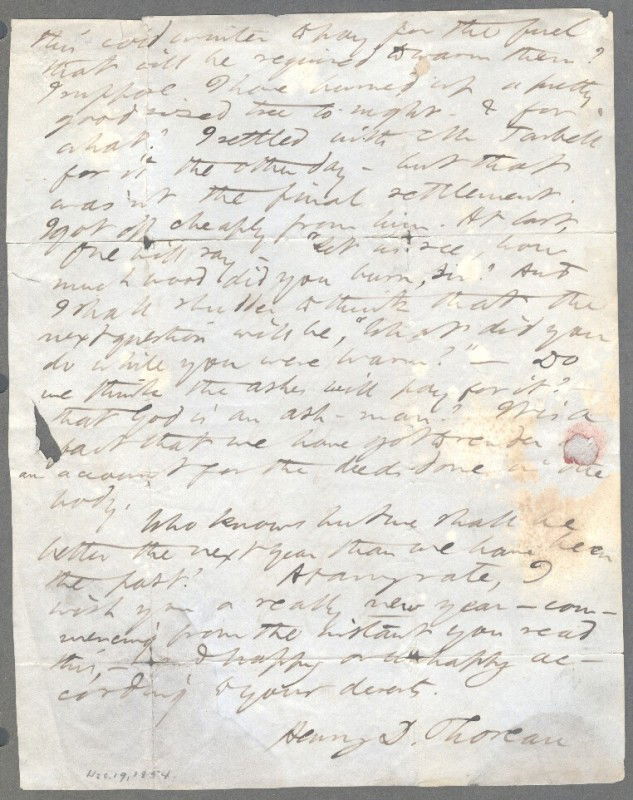 this cold winter to pay for the fuel
that will be required to warm them?
I suppose I have burned up a pretty
good sized tree to-night - & for
what? I settled with Mr Tarbell
for it the other day - but that
wasn't the final settlement.
I got off cheaply from him. At last,
one will say - "Let us see, how
much wood did you burn, sir?" And
I shall shudder to think that the
next question will be, "What did you
do while you were warm?" — Do
we think the ashes will pay for it? -
that God is an ash-man? It is a
fact that we have got to render
an account for the deeds done in the
body.
Who knows but we shall be
better the next year than we have been
the past? At any rate, I
wish you a really new year - com-
mencing from the instant you read
this, - & happy or unhappy ac-
cording to your deserts.
Henry D. Thoreau
Dec. 19, 1854.